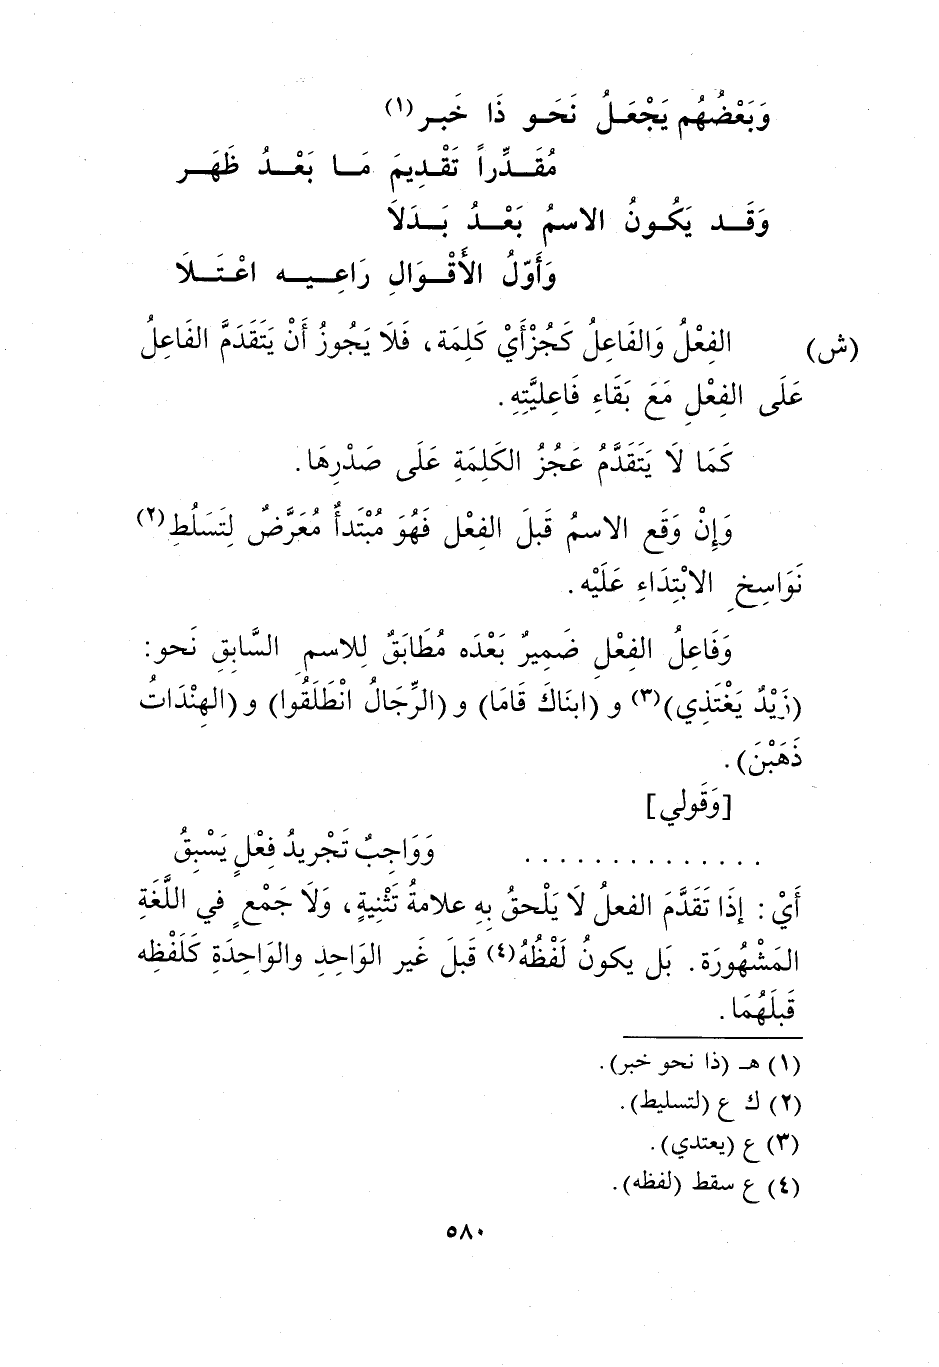 وَبَعْضُهُم يَجْعَلُ نَحَو ذَا خَبر(١)
مُقَدِّراً تَقْدِيمَ مَا بَعْدُ ظَهَر
وَقَد يَكُونُ الاسمُ بَعْدُ بَدَلاَ
وَأَوّلُ الأَقْوَالِ رَاعِيه اعْتَلاَ
(ش) الفِعْلُ وَالفَاعِلُ كَجُزْأَيْ كَلِمَة، فَلاَ يَجُوزُ أَنْ يَتَقَدَمَّ الفَاعِلُ
عَلَى الفِعْلِ مَعَ بَقَاءِ فَاعِليَّتِهِ.
كَمَا لاَ يَتَقَدَّمُ عَجُزُ الكَلِمَةِ عَلَى صَدْرِهَا.
وَإِنْ وَقَع الاسمُ قَبلَ الفِعْل فَهُوَ مُبْتَدأٌ مُعَرَّضٌ لِتَسَلُطِ(٢)
نَوَاسِخِ الابْتِدَاءِ عَلَيْه.
وَفَاعِلُ الفِعْلِ ضَمِيرٌ بَعْدَه مُطَابَقٌ لِلاسمِ السَّابِقِ نَحو:
(زَيْدٌ يَغْتَذِي)(٣) و (ابنَاكَ قَامَا) و (الرِّجَالُ انْطَلَقُوا) و (الهِنْدَاتُ
ذَهَبْنَ).
[وَقَولي]
.............. وَوَاجِبٌ تَجْرِيدُ فِعْلٍ يَسْبِقُ
أَيْ: إذَا تَقَدَّمَ الفعلُ لاَ يَلْحقُ بِهِ علامةُ تَثْنِيةٍ، وَلاَ جَمْعٍ في اللَّغَةِ
المَشْهُورَة. بَل يكونُ لَفْظُهُ(٤) قَبلَ غَير الوَاحِدِ والوَاحِدَةِ كَلَفْظِه
قَبلَهُمَا.
(١) هـ (ذا نحو خبر).
(٢) ك ع (لتسليط).
(٣) ع (يعتدي).
(٤) ع سقط (لفظه).
٥٨٠